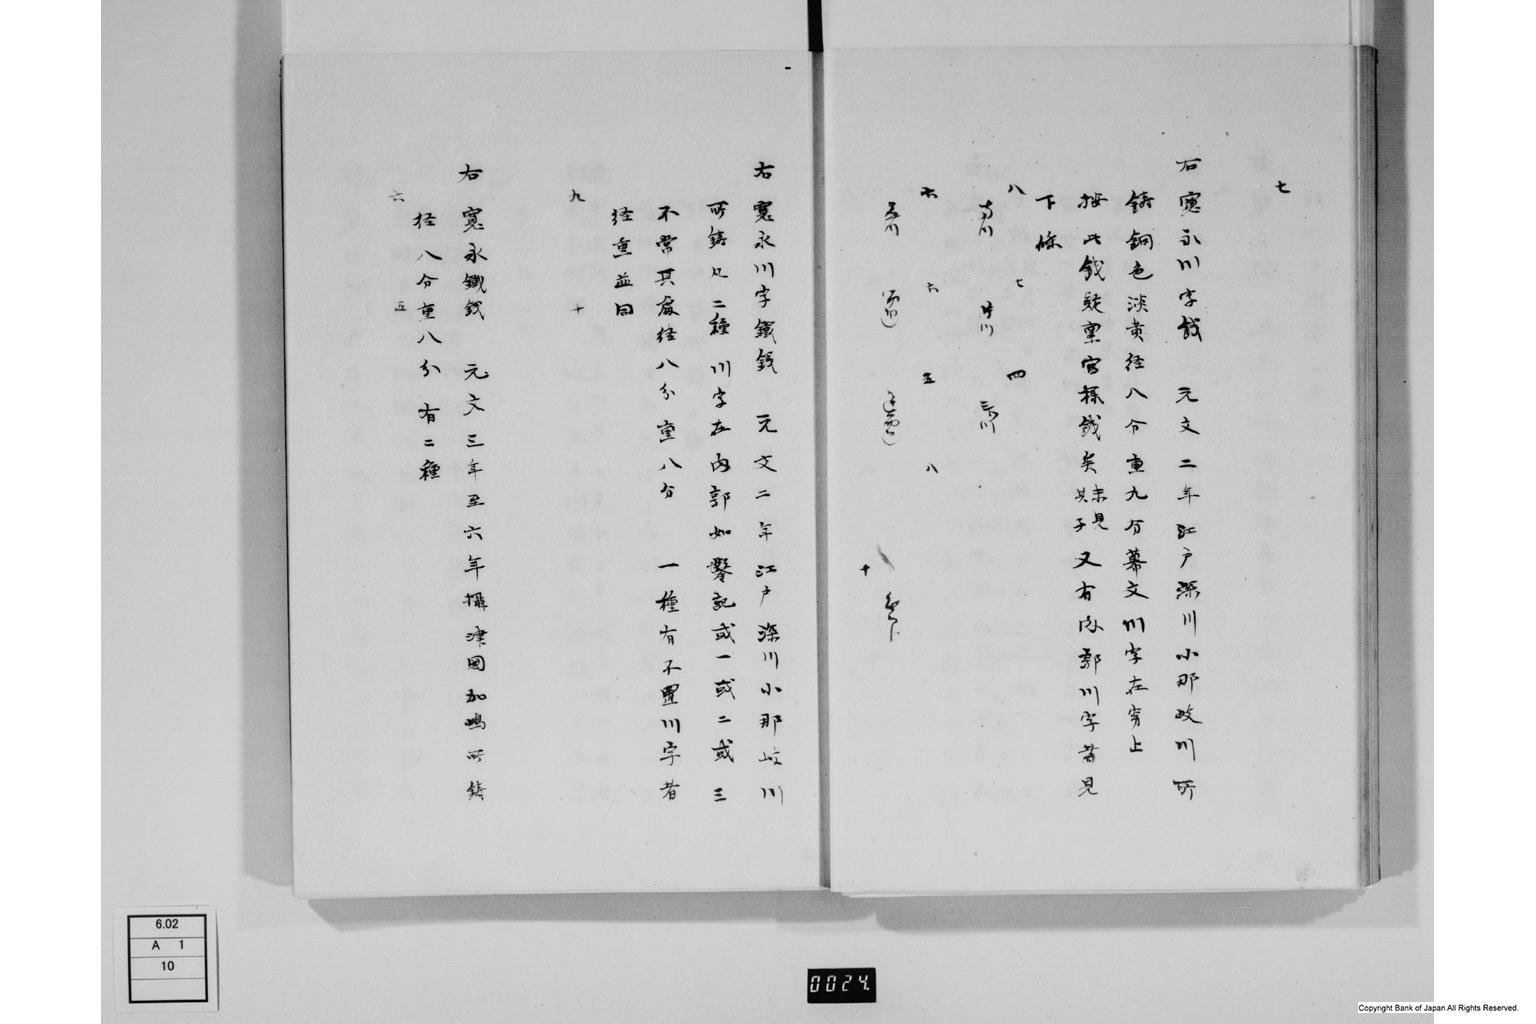 七
右寛永川字錢　元文二年江戸深川小那岐川所
鋳銅色淡黄径八分重九分幕文川字在穿上
按此錢疑稟官様錢矣其子未見又有内郭川字者見
下條
八　七　四
川　川　川
六　六　五　八
川
十
右寛永川字鐵錢　元文二年江戸深川小那岐川
所鋳凡二種　川字在内郭如鑿記或一或二或三
不常其處径八分重八分　一種有不置川字者
径重並同
九　十
右寛永鐵錢　元文三年至六年攝津國加嶋所鋳
径八分重八分　有二種
六　五
6.02
A 1
10
0024.
Copyright Bank of Japan All Rights Reserved.